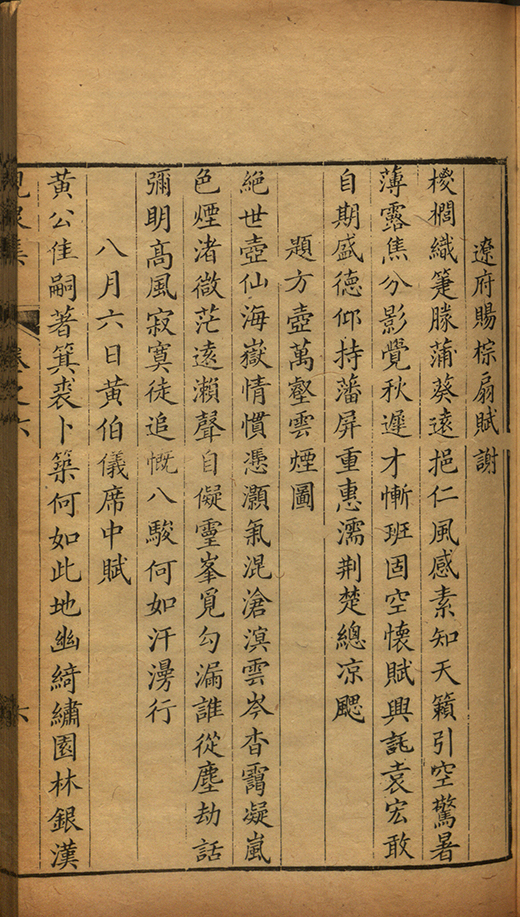 遼府賜棕扇賦謝
椶櫚織箑勝蒲葵遠挹仁風感素知天籟引空驚暑
薄露焦分影覺秋遲才慚班固空懷賦興託袁宏敢
自期盛德仰持藩屏重惠濡荆楚總凉颸
題方壺萬壑雲煙圖
絕世壺仙海嶽情慣憑灝氣混滄溟雲岑杳靄凝嵐
色煙渚微茫遠瀨聲自儗靈峯覓勾漏誰從塵劫話
彌明高風寂寞徒追慨八駿何如汗漫行
八月六日黃伯儀席中賦
黃公佳嗣著箕裘卜築何如此地幽綺繡園林銀漢